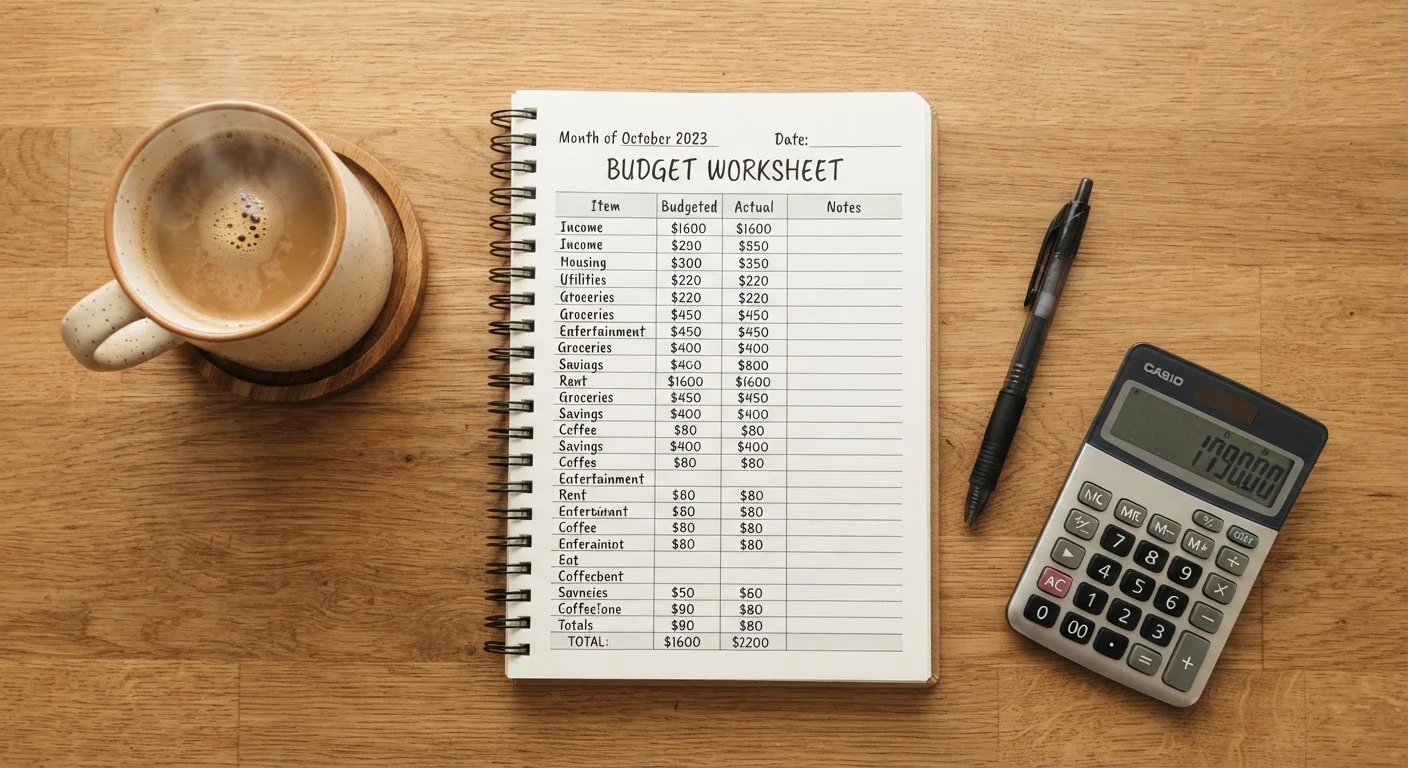 Month of October 2023 Date:
BUDGET WORKSHEET
Item Budgeted Actual Notes
Income $1600 $1600
Income $290 $850
Housing $300 $350
Utilities $220 $220
Groceries $220 $220
Groceries $450 $450
Enfertainment $450 $450
Groceries $400 $400
Savings $400 $800
Rent $1600 $1600
Groceries $450 $450
Savings $400 $400
Coffee $80 $80
Savings $400 $400
Coffes $80 $80
Eatertainment
Rent $80 $80
$80 $80
Coffee $80 $80
$80 $80
Eat
Coffecbent
$50 $60
$90 $80
Totals $90 $80
TOTAL: $1600 $2200
CASIO
MC M- %
7 8 9 ÷
4 5 6 ×
AC 1 2 3 −
0 00 . = +